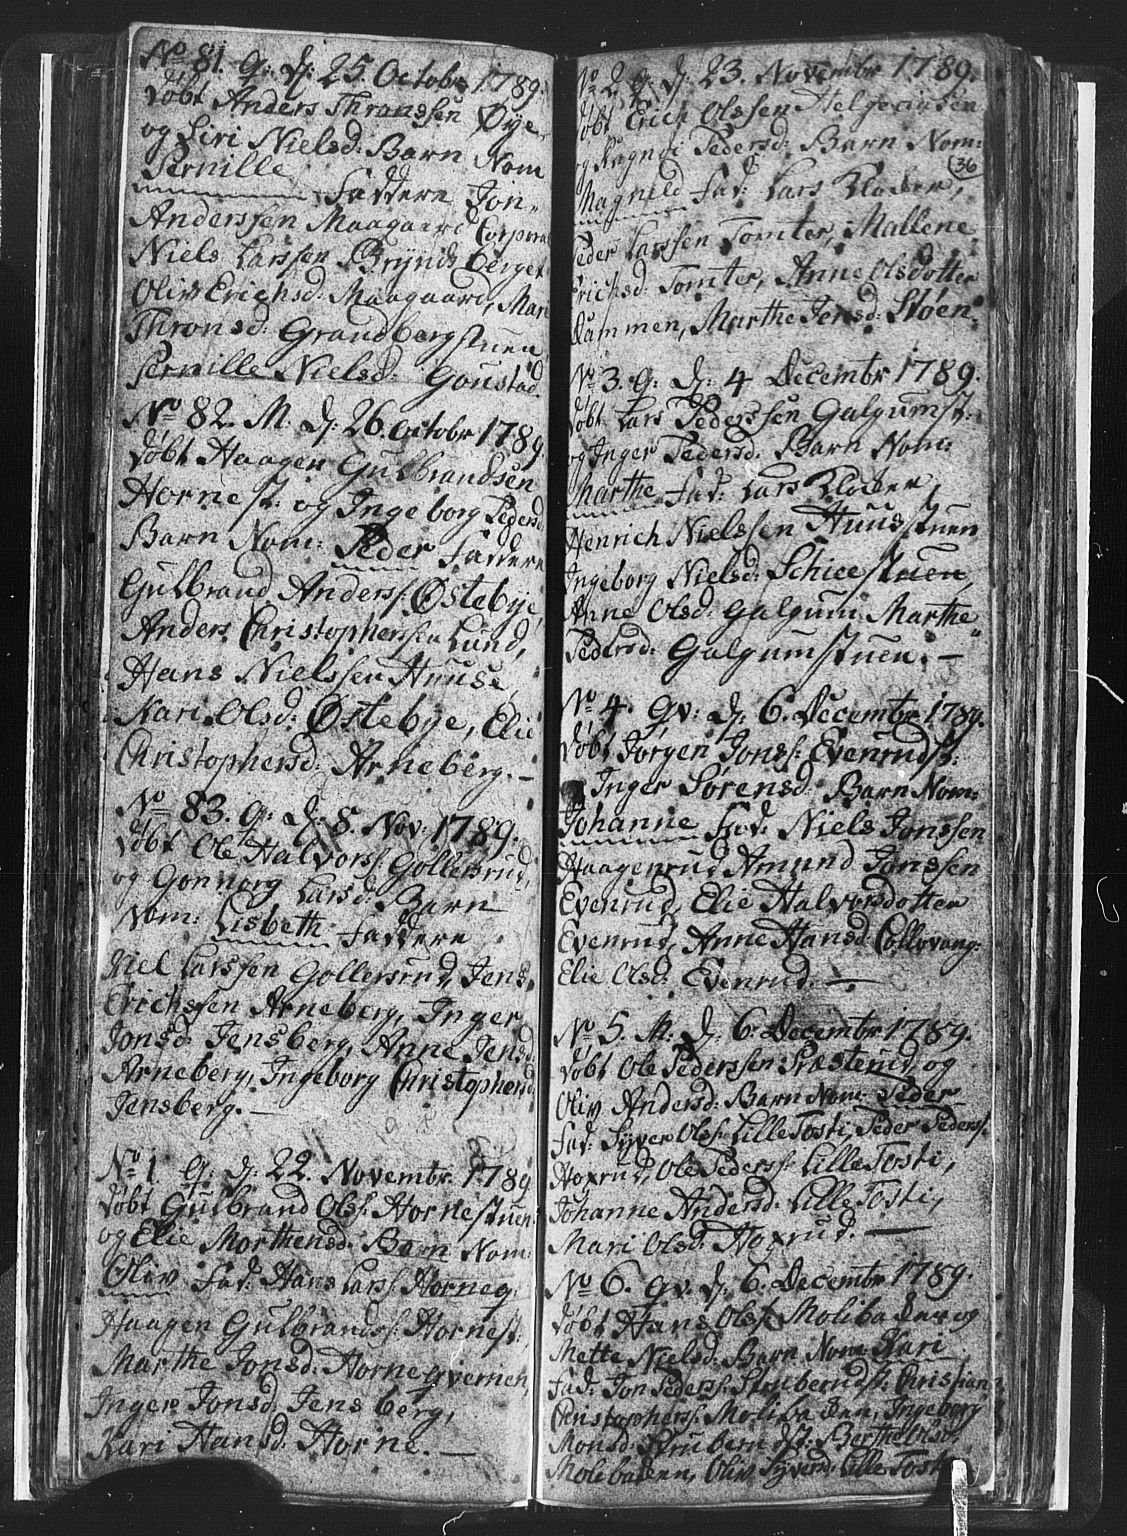 No 81. G: D: 25. Octobr 1789.
døbt Anders Thronssen Øye
og Siri Nielsd: Barn Nom
Pernille Faddere Jon
Anderssen Maagaard Corporal
Niels Larssen Bryndsberget
Oliv Erichsd: Maagaard, Mari
Thronsd: Grandbergstuen
Pernille Nielsd: Goustad
No 82. M. D: 26. Octobr 1789
døbt Haagen Gulbrandsen
Hornest: og Ingeborg Pedersd
Barn Nom: Peder Faddere
Gulbrand Anderss: Østebye,
Anders Christopherssen Lund,
Hans Nielssen Huuse,
Kari Olsd: Østebye, Elie
Christophersd: Arneberg. —
No 83. G: D: 8. Nov: 1789.
døbt Ole Halvorss: Gollersrud,
og Gonnorg Larsd: Barn
Nom: Lisbeth Faddere
Kiel Larssen Gollersrud, Jens
Erichssen Arneberg, Inger
Jonsd: Jensberg, Anne Jensd:
Arneberg, Ingeborg Christophersd
Jensberg. —
No 1. G: D: 22. Novembr 1789
døbt Gulbrand Olss: Hornestuen
og Elie Morthensd: Barn Nom:
Oliv Fad: Hans Larss: Horneq:
Haagen Gulbrandss: Hornest:
Marthe Jonsd: Horneqvernen,
Inger Jonsd: Jensberg,
Kari Hansd: Horne. —
No 2. G: D: 23. Novembr 1789.
døbt Erich Olssen
og Pedersd: Barn Nom:
36
Magnild Fad: Lars Klocker,
Peder Larssen Tomter, Mallene
Erichsd: Tomter, Anne Olsdotter
Dammen, Marthe Jensd: Støen
No 3. G: D: 4 Decembr 1789.
døbt Lars Pederssen Galgumst:
og Inger Pedersd: Barn Nom:
Marthe Fad: Lars Klocker,
Henrich Nielssen Huusstuen
Ingeborg Nielsd: Schieestuen,
Anne Olsd: Galgum Marthe
Pedersd: Galgumstuen. —
No 4. Gv: D: 6. Decembr 1789.
døbt Jørgen Jonss: Evenrudst:
Inger Sørensd: Barn Nom:
Johanne Fad: Niels Jonssen
Haagenrud Amund Jonssen
Evenrud, Elie Halvorsdotter
Evenrud, Anne Hansd: Collovang:
Elie Olsd: Evenrud. —
No 5. M: D: 6. Decembr 1789.
døbt Ole Pederssen Præsterud, og
Oliv Andersd: Barn Nom: Peder
Fad: Syver Olss: Lille Tosti, Peder Pederss:
Hoxrud, Ole Pederss: Lille Tosti,
Johanne Andersd: Lille Tosti,
Mari Olsd: Hoxrud. —
No 6. Gv. D: 6. Decembr 1789.
døbt Hans Olss: Molibaden og
Mette Nielsd: Barn Nom: Kari
Fad: Jon Pederss: Struberudst: Christian
Christopherss: Molibaden, Ingeborg
Monsd: Struberudst: Berthe Olsd:
Molebadenn, Oliv Syversd: Lille Tosti